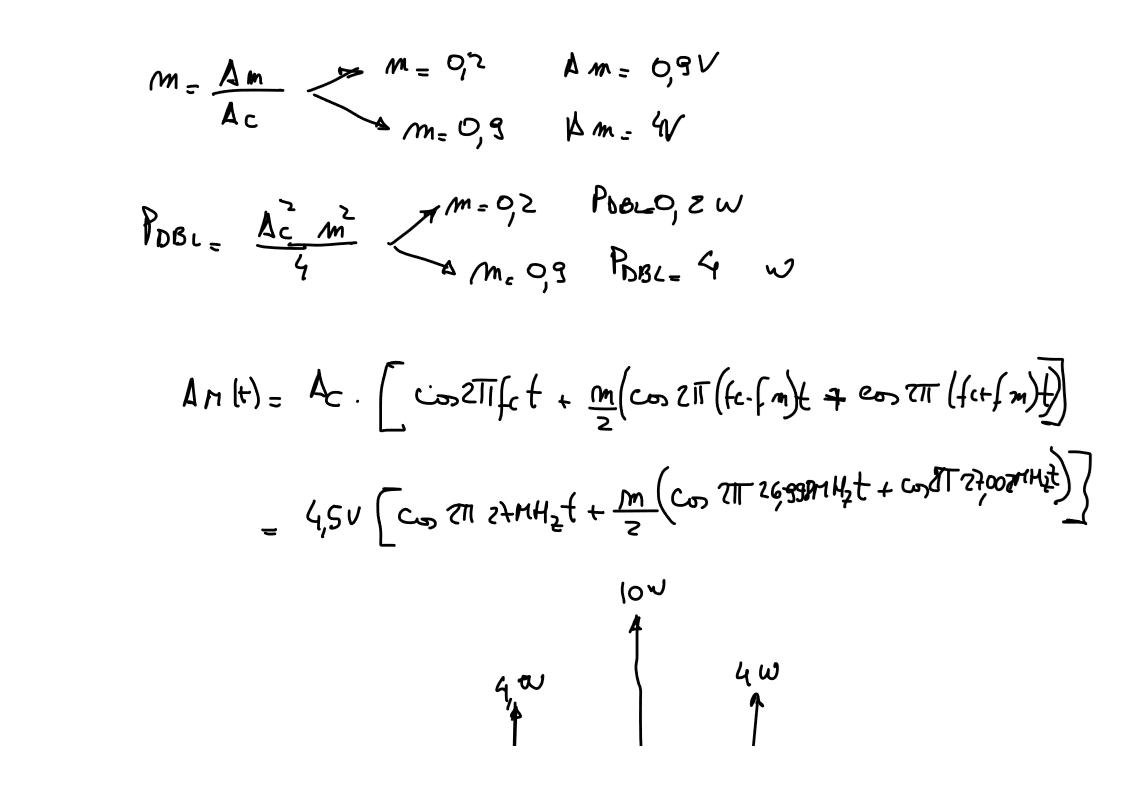 m = Am / Ac → m = 0,2 Am = 0,9V
→ m = 0,9 Am = 4V
PDBL = Ac² m² / 4 → m = 0,2 PDBL 0,2 W
→ m = 0,9 PDBL = 4 W
AM(t) = Ac · [cos2πfct + m/2 (cos2π(fc-fm)t + cos2π(fc+fm)t)]
= 4,5V [cos 2π 27MHzt + m/2 (cos 2π 26,998MHzt + cos2π 27,002MHzt)]
10W
4W